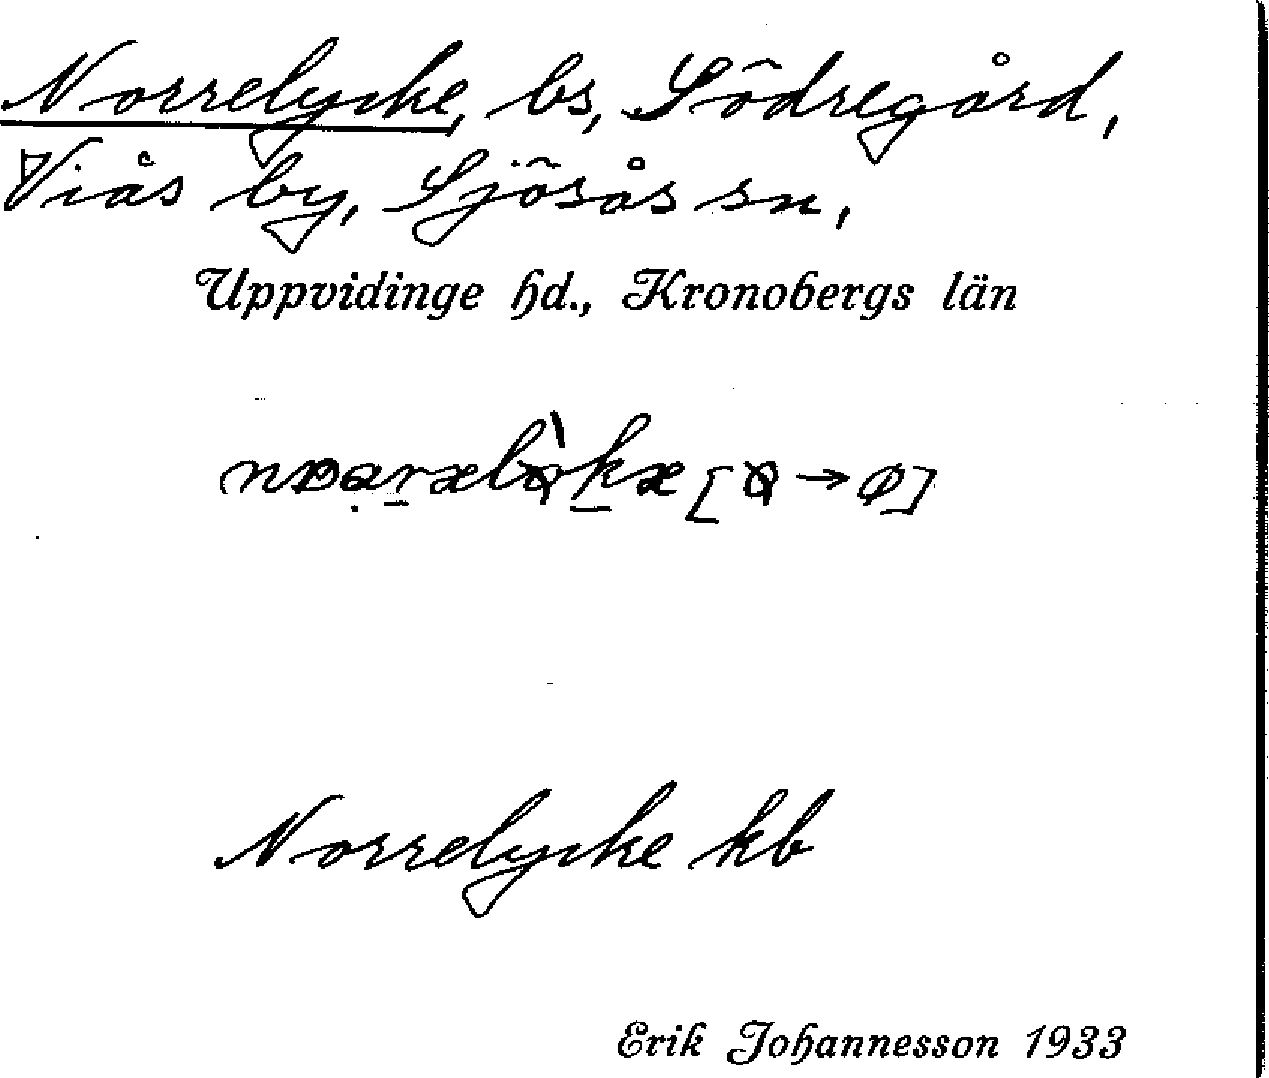 Norrelycke, bs, Södregård,
Viås by, Sjösås sn,
Uppvidinge hd., Kronobergs län
Norrelycke kb
Erik Johannesson 1933